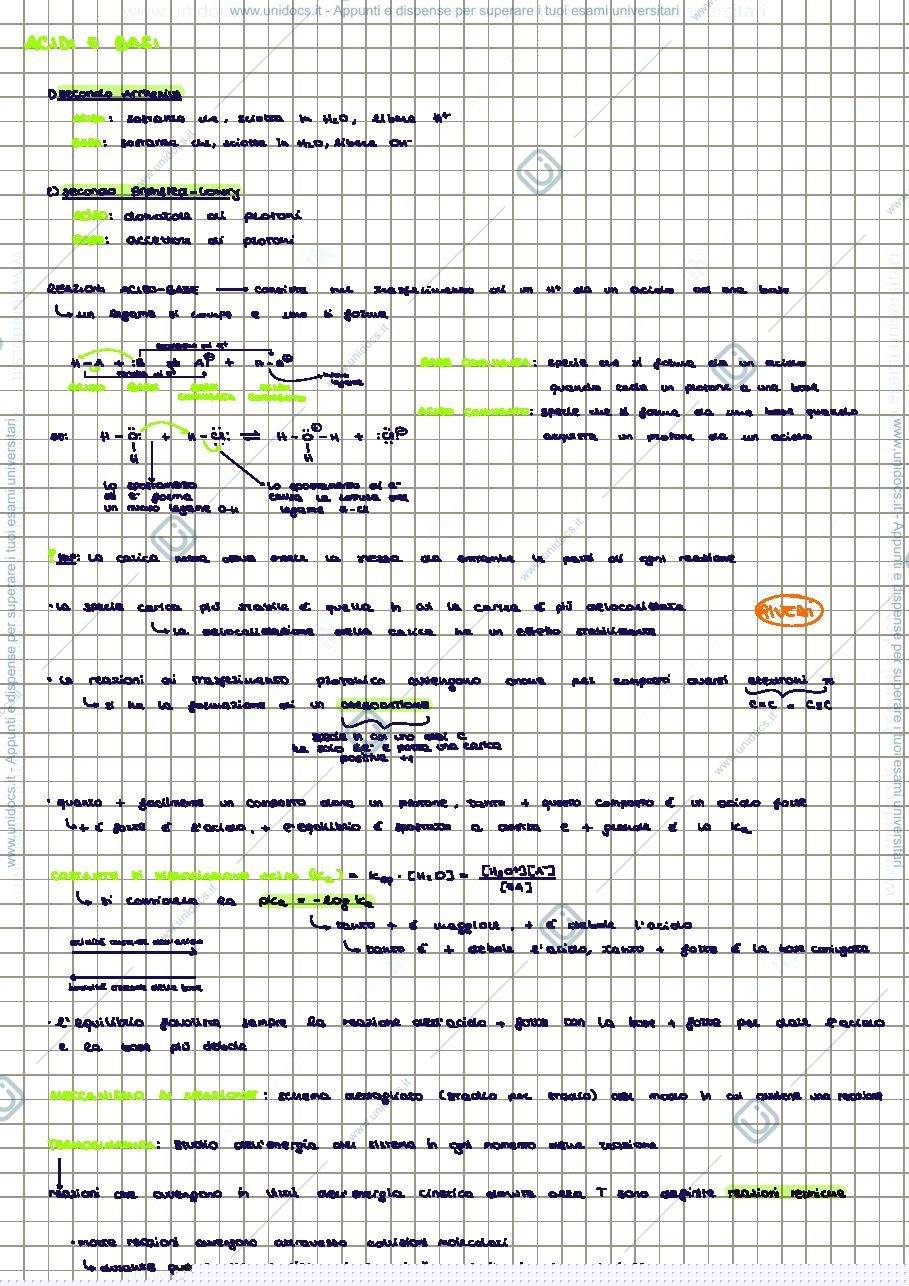 www.unidocs.it - Appunti e dispense per superare i tuoi esami universitari
ACIDI E BASI
1) secondo Arrhenius
ACIDO: sostanza che, sciolta in H2O, libera H+
BASE: sostanza che, sciolta in H2O, libera OH-
2) secondo Brønsted-Lowry
ACIDO: donatore di protoni
BASE: accettore di protoni
REAZIONI ACIDO-BASE → consiste nel trasferimento di un H+ da un acido ad una base
↳ un legame si rompe e uno si forma
H-A + :B ⇌ A:⊖ + H-B⊕
ACIDO BASE BASE CONIUGATA ACIDO CONIUGATO
nuovo legame
BASE CONIUGATA: specie che si forma da un acido
quando cede un protone a una base
ACIDO CONIUGATO: specie che si forma da una base quando
acquista un protone da un acido
es: H-O: + H-Cl: ⇌ H-O⊕-H + :Cl:⊖
H H
lo spostamento
di e- forma
un nuovo legame O-H
lo spostamento di e-
causa la rottura del
legame H-Cl
! NB: la carica netta deve essere la stessa da entrambe le parti di ogni reazione
• la specie carica più stabile è quella in cui la carica è più delocalizzata
RIVEDI
↳ la delocalizzazione della carica ha un effetto stabilizzante
• le reazioni di trasferimento protonico avvengono anche per composti aventi elettroni π
↳ si ha la formazione di un CARBOCATIONE
C=C o C≡C
specie in cui uno dei C
ha solo 6e- e porta una carica
positiva +1
• quanto + facilmente un composto dona un protone, tanto + questo composto è un acido forte
↳ + è forte è l'acido, + l'equilibrio è spostato a destra e + grande è la Ka
COSTANTE DI DISSOCIAZIONE ACIDA (Ka) = Keq · [H2O] = [H3O+][A-] / [HA]
↳ si considera la pKa = -log Ka
↳ tanto + è maggiore, + è debole l'acido
↳ tanto è + debole l'acido, tanto + forte è la base coniugata
• l'equilibrio favorisce sempre la reazione dell'acido + forte con la base + forte per dare l'acido
e la base più debole
MECCANISMO DI REAZIONE: schema dettagliato (stadio per stadio) del modo in cui avviene una reazione
TERMODINAMICA: studio dell'energia del sistema in ogni momento della reazione
reazioni che avvengono in virtù dell'energia cinetica dovuta alla T sono definite reazioni termiche
• molte reazioni avvengono attraverso collisioni molecolari